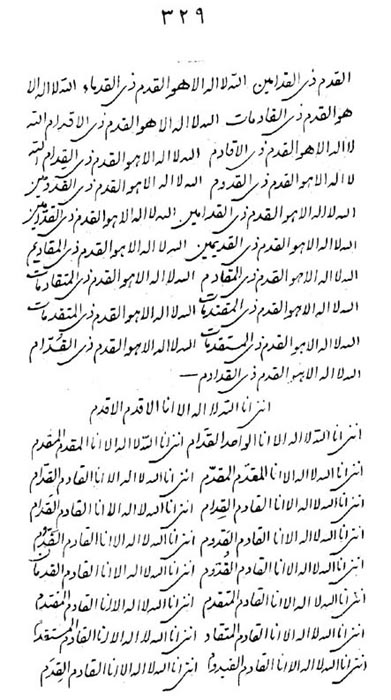 ٣٢٩
القدم ذی القدامین الله لا اله الا هو القدم ذی القدماء الله لا اله الا
هو القدم ذی القادمات الله لا اله الا هو القدم ذی الاقدام الله
لا اله الا هو القدم ذی الاقادم الله لا اله الا هو القدم ذی القدام الله
لا اله الا هو القدم ذی القدوم الله لا اله الا هو القدم ذی القدومین
الله لا اله الا هو القدم ذی القدامین الله لا اله الا هو القدم ذی
الله لا اله الا هو القدم ذی القدیمین الله لا اله الا هو القدم ذی المقادیم
الله لا اله الا هو القدم ذی المقادم الله لا اله الا هو القدم ذی المتقادمات
الله لا اله الا هو القدم ذی المقتدمات الله لا اله الا هو القدم ذی المتقدمات
الله لا اله الا هو القدم ذی المستقدمات الله لا اله الا هو القدم ذی القدام
الله لا اله الا هو القدم ذی القدادم
اننی انا الله لا اله الا انا الاقدم الاقدم
اننی انا الله لا اله الا انا الواحد القدام اننی انا الله لا اله الا انا المقدم المقدم
اننی انا الله لا اله الا انا المقدم المقدم اننی انا الله لا اله الا انا القادم القدام
اننی انا الله لا اله الا انا القادم القدام اننی انا الله لا اله الا انا القادم القدام
اننی انا الله لا اله الا انا القادم القدوم اننی انا الله لا اله الا انا القادم
اننی انا الله لا اله الا انا القادم القدوم اننی انا الله لا اله الا انا القادم القدمان
اننی انا الله لا اله الا انا القادم المتقدم اننی انا الله لا اله الا انا القادم
اننی انا الله لا اله الا انا القادم المتقاد اننی انا الله لا اله الا انا القادم
اننی انا الله لا اله الا انا القادم القیدوم اننی انا الله لا اله الا انا القادم